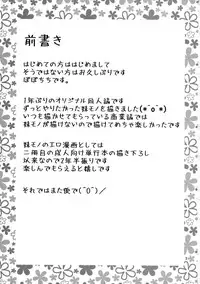 前書き
はじめての方ははじめまして
そうではない方はお久しぶりです
ぽぽちちです。
1年ぶりのオリジナル同人誌です
ずっとやりたかった妹モノを描きました(*^o^*)
いつも描かせてもらっている商業誌では
妹モノが描けないので描けてめちゃ楽しかったです
妹モノのエロ漫画としては
二冊目の成人向け単行本の描き下ろし
以来なので2年半振りです
楽しんでもらえると嬉しいです
それではまた後で(^O^)／